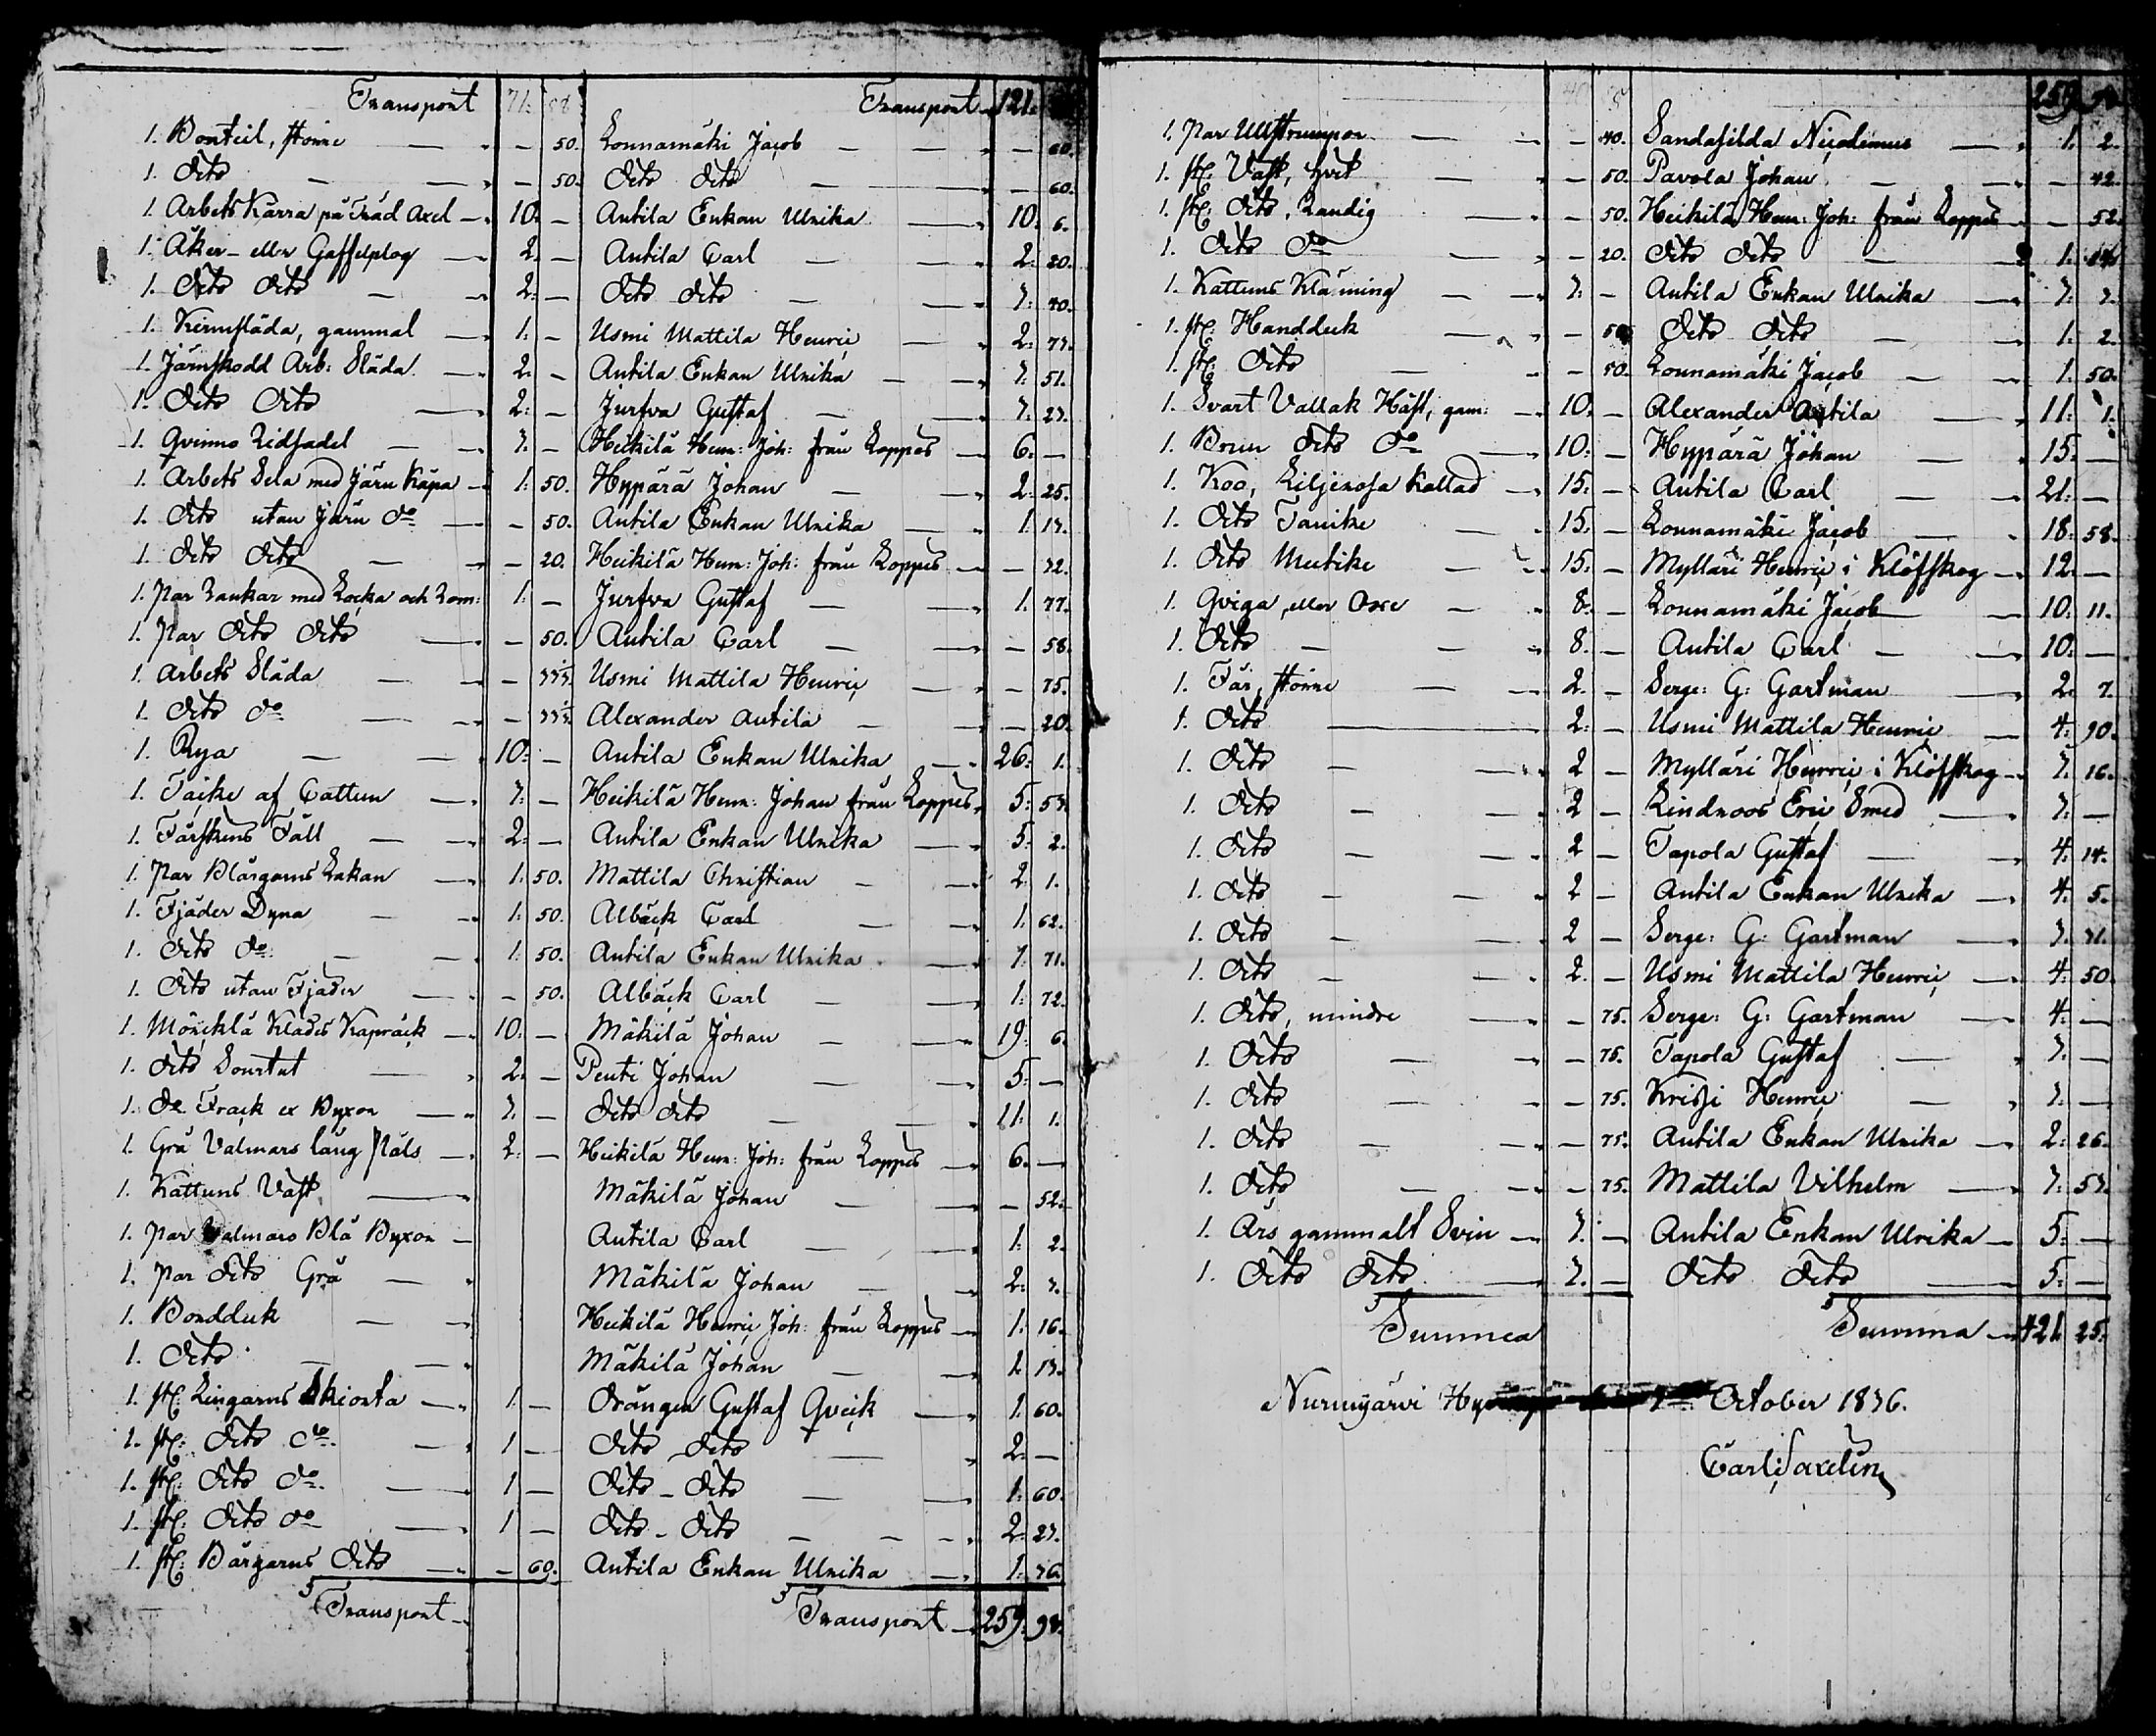 Transport 71: 58. Transport 121.
1. Bonteil, större - 50. Lonnamäki Jacob - 60.
1. Dito - 50. Dito Dito - 60.
1. Arbets Kärra på Träd Axel 10: - Antila Enkan Ulrika 10: 6.
1. Åker- eller Gaffelplog 2: - Antila Carl 2: 20.
1. Dito Dito 2: - Dito Dito 3: 40.
1. Kirmsläda, gammal 1: - Usmi Mattila Henric 2: 73.
1. Järnskodd Arb: Släda 2: - Antila Enkan Ulrika 3: 51.
1. Dito Dito 2: - Jurfva Gustaf 3: 23.
1. Qvinno Ridsadel 3: - Heikilä Hem: Joh: från Loppis 6: -
1. Arbets Sela med Järn Kåpa 1: 50. Hypärä Johan 2: 25.
1. Dito utan Järn do - 50. Antila Enkan Ulrika 1: 13.
1. Dito Dito - 20. Heikilä Hem: Joh: från Loppis - 32.
1. Par Rankar med Locka och Rom: 1: - Jurfva Gustaf 1. 77.
1. Par Dito Dito - 50. Antila Carl - 58.
1. Arbets Släda - 33⅓. Usmi Mattila Henric - 75.
1. Dito do - 33⅓. Alexander Antila - 20.
1. Rya 10: - Antila Enkan Ulrika 26: 1.
1. Täcke af Cattun 3: - Heikilä Hem: Johan från Loppis 5: 53.
1. Fårskins Fäll 2: - Antila Enkan Ulrika 5: 2.
1. Par Blårgarns Lakan 1: 50. Mattila Christian 2: 1.
1. Fjäder Dyna 1: 50. Albäck Carl 1: 62.
1. Dito do 1: 50. Antila Enkan Ulrika 3: 71.
1. Dito utan Fjäder - 50. Albäck Carl 1: 72.
1. Mörckblå Klädes Kapräck 10: - Mäkilä Johan 19: 6.
1. Dito Sourtut 2: - Penti Johan 5: -
1. do Frack ex Byxor 3: - Dito Dito 11: 1.
1. Grå Valmars lång Päls 2: - Heikilä Hem: Joh: från Loppis 6: -
1. Kattuns Väst Mäkilä Johan - 52.
1. Par Valmars Blå Byxor Antila Carl 1: 2.
1. Par Dito Grå Mäkilä Johan 2: 3.
1. Bordduk Heikilä Henric Joh: från Loppis 1: 16.
1. Dito Mäkilä Johan 1. 13.
1. st: Lingarns Skiorta 1. - Drängen Gustaf Qveick 1: 60.
1. st: Dito do 1 - Dito Dito 2: -
1. st: Dito do 1 - Dito - Dito 1: 60.
1. st: Dito do 1 - Dito - Dito 2: 23.
1. st: Bårgarns Dito - 60. Antila Enkan Ulrika 1: 36.
Transport Transport 259: 98.
259. 98.
1. Par Ullstrumpor - 40. Sandasilda Nicodemus 1: 2.
1. st: Väst, hvit - 50. Pavola Johan - 42.
1. st: Dito, Randig - 50. Heikilä Hem: Joh: från Loppis - 52.
1. Dito do - 20. Dito Dito 1.
1. Kattuns Klädning 3: - Antila Enkan Ulrika 3: 3.
1. st: Handduk - 50. Dito Dito 1: 2.
1. st: Dito - 50. Lonnamäki Jacob 1. 50.
1. Svart Vallak Häst, gam: 10: - Alexander Antila 11: 1.
1. Brun Dito do 10: - Hypärä Johan 15: -
1. Koo, Liljerosa kallad 15: - Antila Carl 21: -
1. Dito Tanike 15: - Lonnamäki Jacob 18: 58.
1. Dito Mutike 15: - Mylläri Henric i Klöfskog 12: -
1. Qviga, eller Oxe 8: - Lonnamäki Jacob 10: 11.
1. Dito 8. - Antila Carl 10: -
1. Får, större 2. - Serge: G: Gartman 2: 7.
1. Dito 2: - Usmi Mattila Henric 4: 90.
1. Dito 2 - Mylläri Henric i Klöfskog 3: 16.
1. Dito 2 - Lindroos Eric Smed 3: -
1. Dito 2 - Tapola Gustaf 4: 14.
1. Dito 2 - Antila Enkan Ulrika 4: 5.
1. Dito 2 - Serge: G: Gartman 3. 31.
1. Dito 2. - Usmi Mattila Henric 4: 50.
1. Dito, mindre - 75. Serge: G: Gartman 4: -
1. Dito - 75. Tapola Gustaf 3: -
1. Dito - 75. Henric 3: -
1. Dito - 75. Antila Enkan Ulrika 2: 26.
1. Dito - 75. Mattila Vilhelm 3: 53.
1. Års gammalt Svin 3: - Antila Enkan Ulrika 5: -
1. Dito Dito 3. - Dito Dito 5: -
Summa Summa 421 25.
Nurmijärvi October 1836.
Carl Saxelin